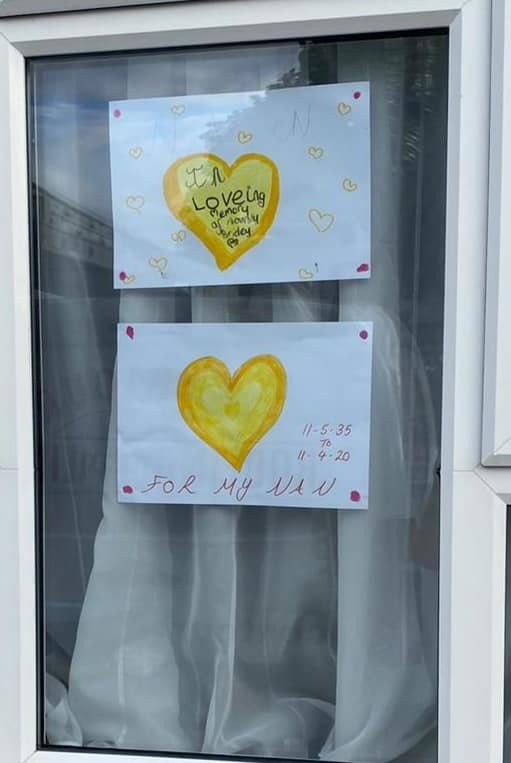 In
Loveing
Memory
of
11-5-35
To
11-4-20
FOR MY NAN